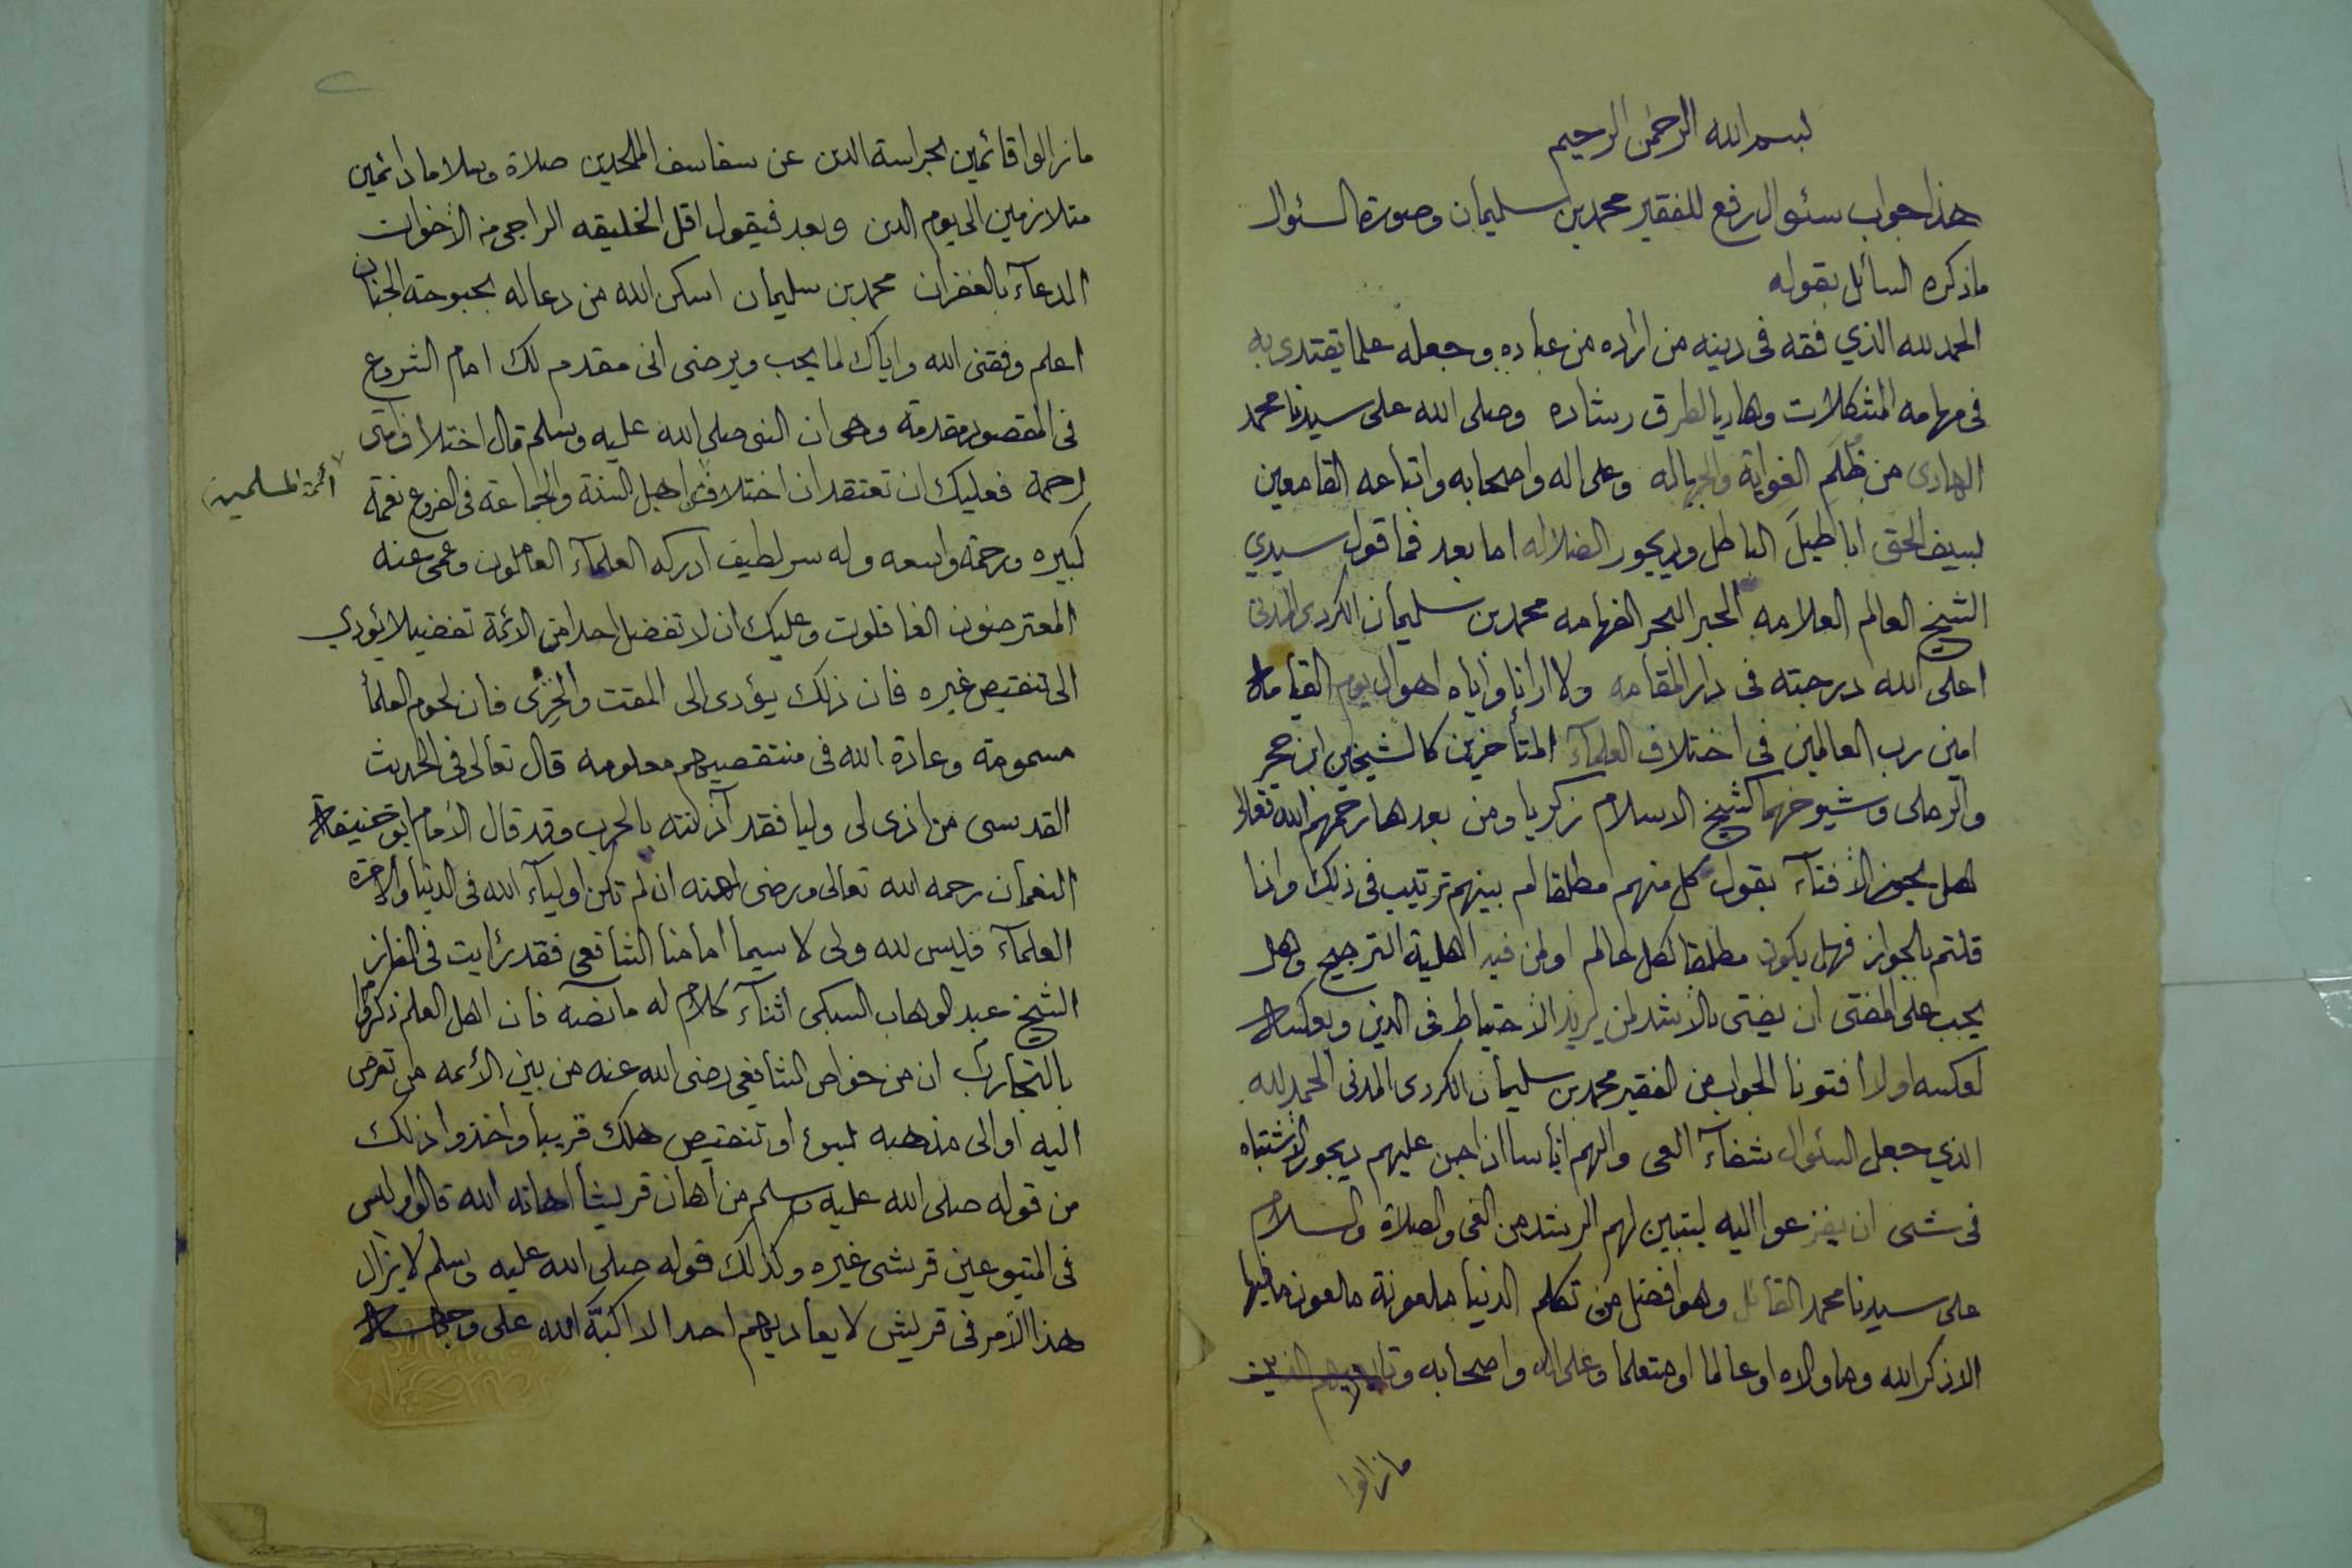 بسم الله الرحمن الرحيم
هذا جواب سئوال رفع للفقير محمد بن سليمان وصورة السئوال
ماذكره السائل بقوله
الحمد لله الذي فقه فى دينه من اراده من عباده وجعله علما يقتدى به
فى مهامه المشكلات وهاديا لطرق رشاده وصلى الله على سيدنا محمد
الهادى من ظُلَم الغواية والجهاله وعلى اله واصحابه واتباعه القامعين
بسيف الحق اباطيلَ الباطل وديجور الضلاله اما بعد فما قول سيدي
الشيخ العالم العلامه الحبر البحر الفهامه محمد بن سليمان الكردى المدنى
اعلى الله درجته فى دار المقامه ولا ارانا واياه اهوال يوم القيامة
امين رب العالمين فى اختلاف العلمآء المتأخرين كالشيخين ابن حجر
والرملى وشيوخهما كشيخ الاسلام زكريا ومن بعدهما رحمهم الله تعالى
هل يجوز الافتآء بقول كل منهم مطلقا ام بينهم ترتيب فى ذلك واذا
قلتم بالجواز فهل يكون مطلقا لكل عالم او لمن فيه اهلية الترجيح وهل
يجب على المفتى ان يفتى بالأشد لمن يريد الاحتياط فى الدين وبعكسه
لعكسه اولا افتونا الجواب من الفقير محمد بن سليمان الكردى المدنى الحمد لله
الذي جعل السئوال شفآء العى والهم اناسا اذا جن عليهم ديجور الاشتباه
فى شى ان يفزعوا اليه ليتبين لهم الرشد من الغى والصلاة والسلام
على سيدنا محمد القائل وهو افضل من تكلم الدنيا ملعونة ملعون ما فيها
الا ذكر الله وما والاه او عالما او متعلما وعلى اله واصحابه وتابعيهم الذين
مازالوا
مازالوا قائمين بحراسة الدين عن سفاسف الملحدين صلاة وسلاما دائمين
متلازمين الى يوم الدين وبعد فيقول اقل الخليقه الراجى من الاخوان
الدعآء بالغفران محمد بن سليمان اسكن الله من دعا له بحبوحة الجنان
اعلم وفقنى الله واياك لما يحب ويرضى انى مقدم لك امام الشروع
فى المقصود مقدمة وهى ان النبى صلى الله عليه وسلم قال اختلاف امتى
رحمة فعليك ان تعتقد ان اختلاف اهل السنة والجماعة فى الفروع نعمة
ائمة المسلمين
كبيره ورحمة واسعه وله سر لطيف ادركه العلمآء العاملون وعمى عنه
المعترضون الغافلون وعليك ان لا تفضل احدا من الائمة تفضيلا يؤدي
الى تنقيص غيره فان ذلك يؤدى الى المقت والخزى فان لحوم العلمأ
مسمومة وعادة الله فى منتقصيهم معلومه قال تعالى فى الحديث
القدسى من اذى لى وليا فقد آذنته بالحرب وقد قال الأمام ابو حنيفة
النعمان رحمه الله تعالى ورضى عنه ان لم تكن اوليآء الله فى الدنيا والاخرة
العلمآء فليس لله ولى لا سيما امامنا الشافعى فقد رأيت فى الغاز
الشيخ عبد الوهاب السبكى اثنآء كلام له ما نصه فان اهل العلم ذكروا
بالتجارب ان من خواص الشافعى رضى الله عنه من بين الأئمه من تعرض
اليه او الى مذهبه بسوء او تنقيص هلك قريبا واخذوا ذلك
من قوله صلى الله عليه وسلم من اهان قريشا اهانه الله قالوا وليس
فى المتبوعين قرشى غيره وكذلك قوله صلى الله عليه وسلم لا يزال
هذا الأمر فى قريش لا يعاديهم احد الا اكبّه الله على وجهه